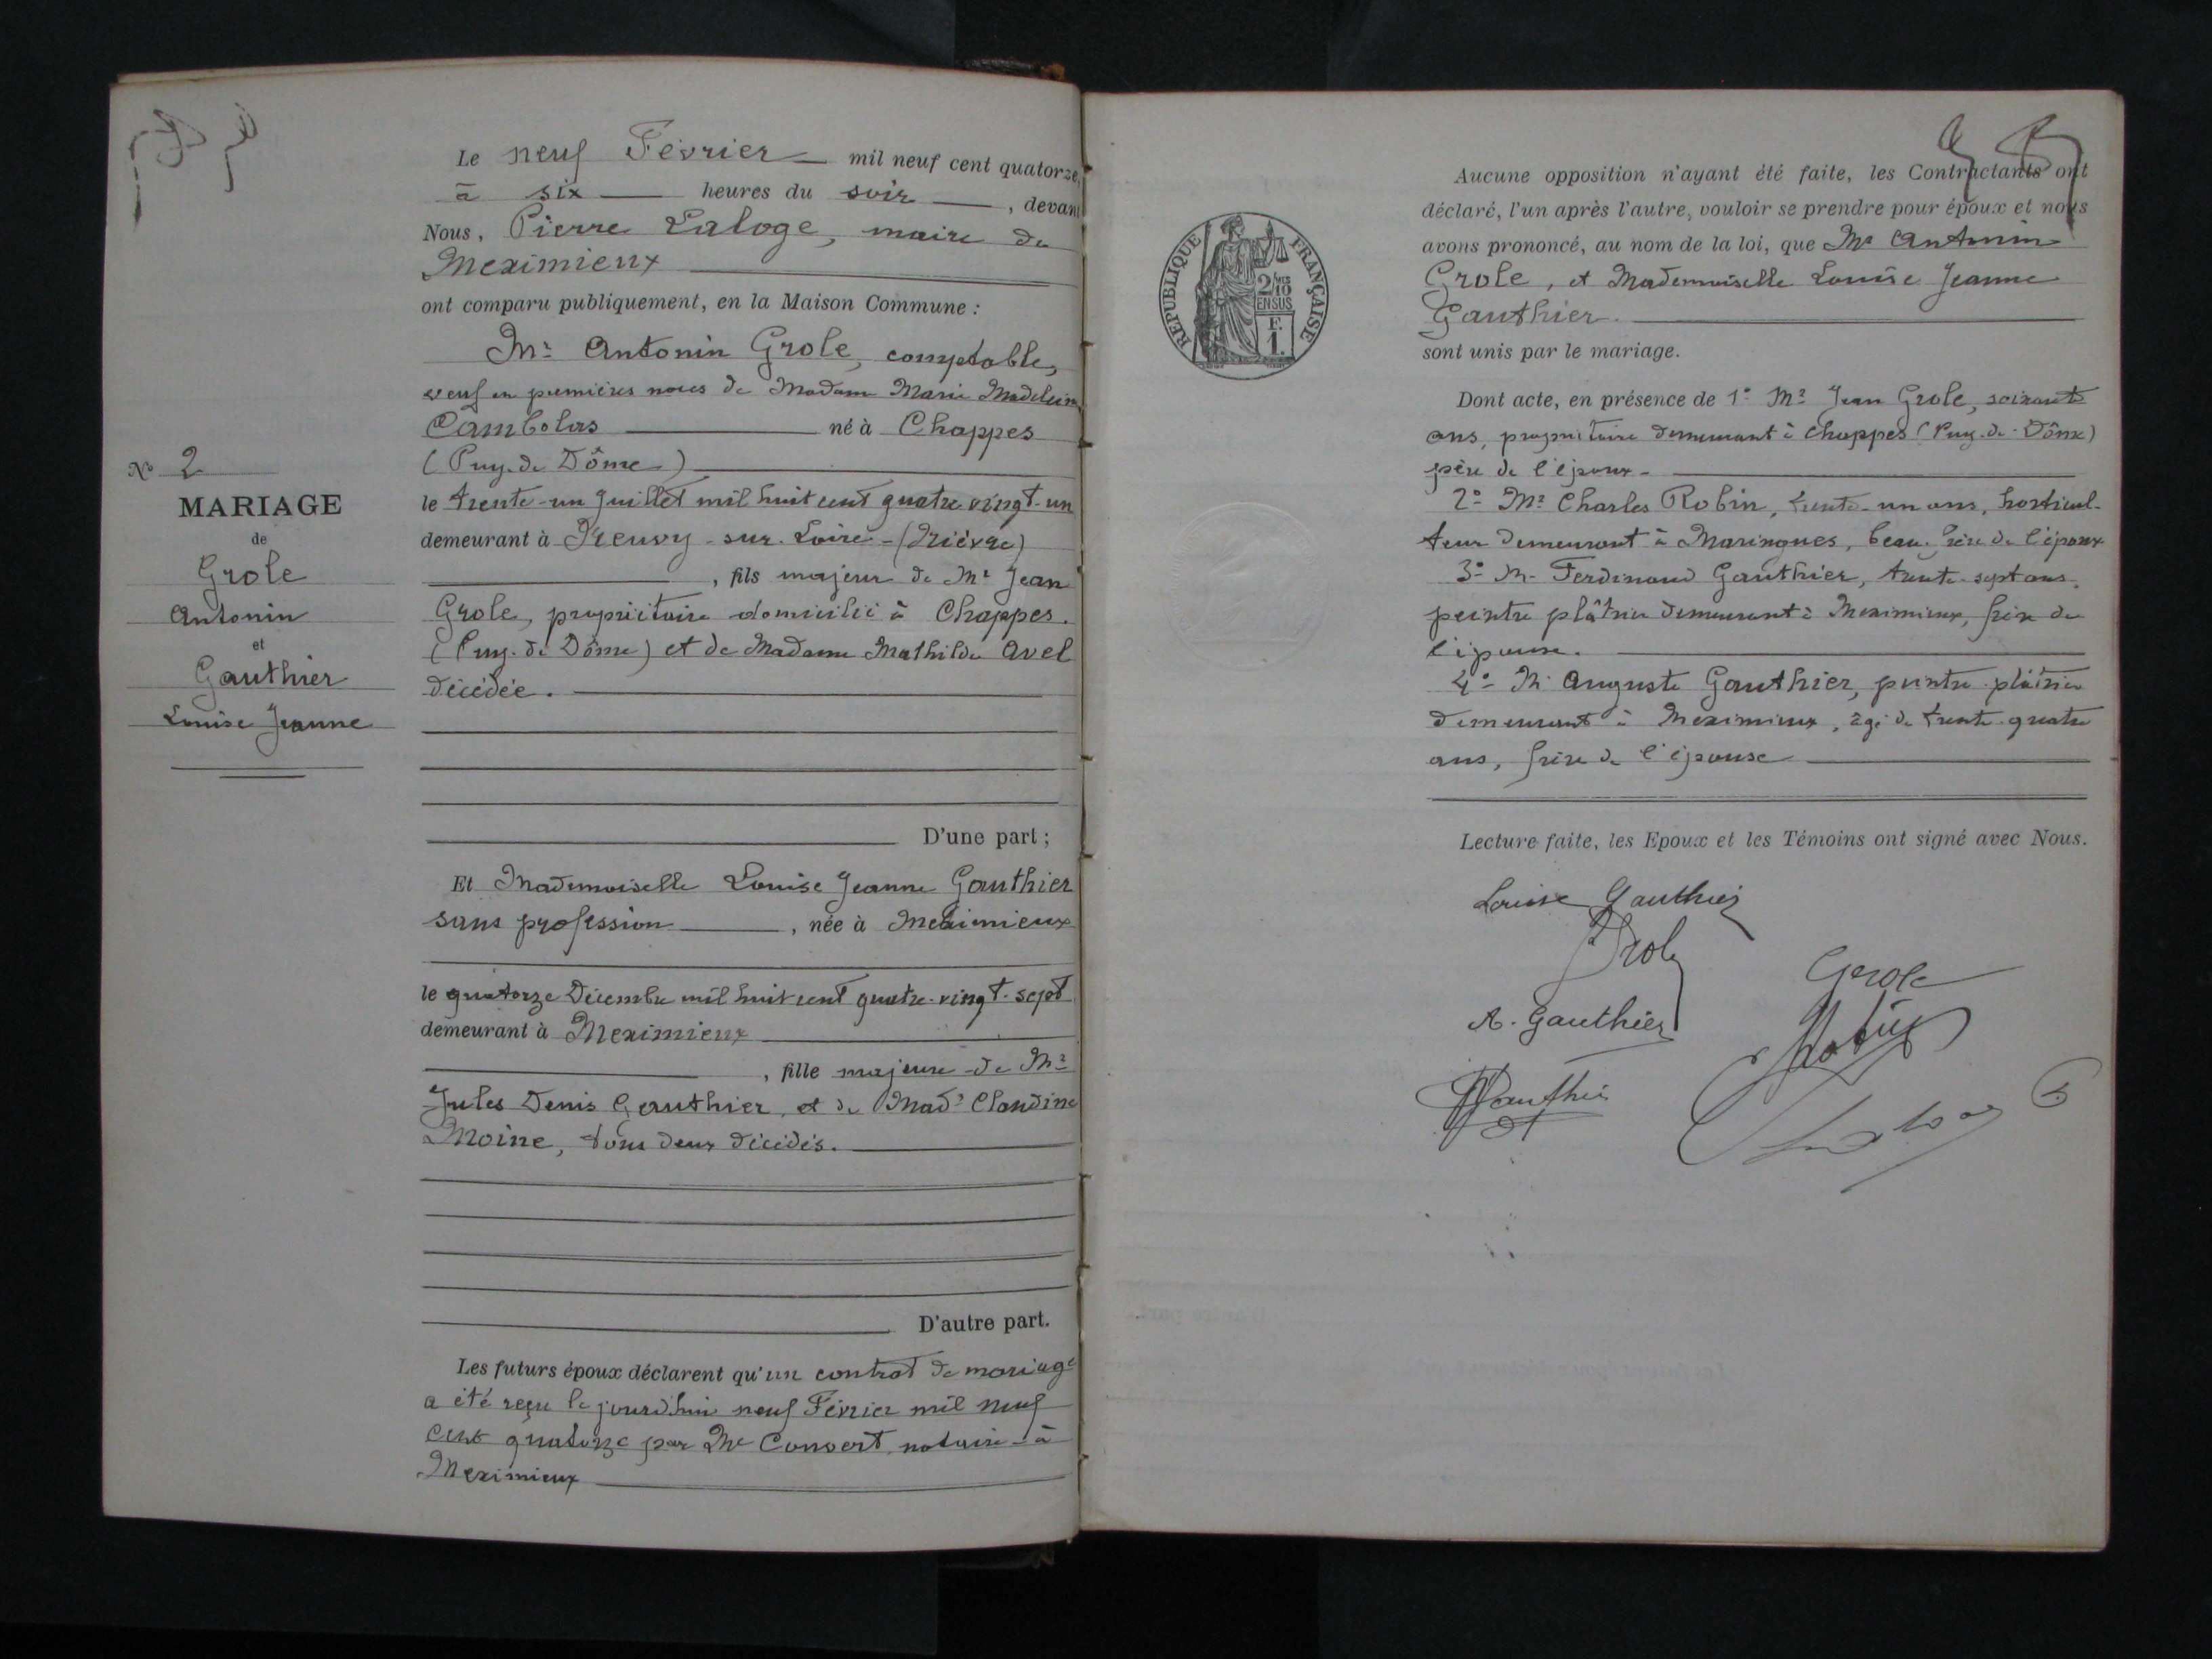 Le neuf Février mil neuf cent quatorze,
à six heures du soir, devant
Nous, Pierre Laloge, maire de
Meximieux
ont comparu publiquement, en la Maison Commune :
Mr Antonin Grole, comptable,
veuf en premières noces de Madame Marie Madeleine
Cambolas né à Chappes
(Puy-de-Dôme)
le trente-un Juillet mil huit cent quatre-vingt-un
demeurant à Neuvy-sur-Loire-(Nièvre)
, fils majeur de Mr Jean
Grole, propriétaire domicilié à Chappes.
(Puy-de-Dôme) et de Madame Mathilde Avel
décédée.
D'une part ;
Et Mademoiselle Louise Jeanne Gauthier
sans profession, née à Meximieux
le quatorze Décembre mil huit cent quatre-vingt-sept
demeurant à Meximieux
, fille majeure de Mr
Jules Denis Gauthier, et de Made Claudine
Moine, tous deux décédés.
D'autre part.
Les futurs époux déclarent qu'un contrat de mariage
a été reçu le jourd'hui neuf Février mil neuf
cent quatorze par Me Convert notaire à
Meximieux
No 2
MARIAGE
de
Grole
Antonin
et
Gauthier
Louise Jeanne
REPUBLIQUE FRANÇAISE
2/10
EN SUS
F.
1.
Aucune opposition n'ayant été faite, les Contractants ont
déclaré, l'un après l'autre, vouloir se prendre pour époux et nous
avons prononcé, au nom de la loi, que Mr Antonin
Grole, et Mademoiselle Louise Jeanne
Gauthier.
sont unis par le mariage.
Dont acte, en présence de 1° Mr Jean Grole, soixante
ans, propriétaire demeurant à Chappes (Puy-de-Dôme)
père de l'époux-
2° Mr Charles Robin, trente-un ans, horticul-
teur demeurant à Maringues, beau-frère de l'époux
3° M. Ferdinand Gauthier, trente-sept ans,
peintre plâtrier demeurant à Meximieux, frère de
l'épouse.
4° M. Auguste Gauthier, peintre-plâtrier
demeurant à Meximieux, âgé de trente-quatre
ans, frère de l'épouse
Lecture faite, les Epoux et les Témoins ont signé avec Nous.
Louise Gauthier
Grole
Grole
A. Gauthier
Robin
Gauthier